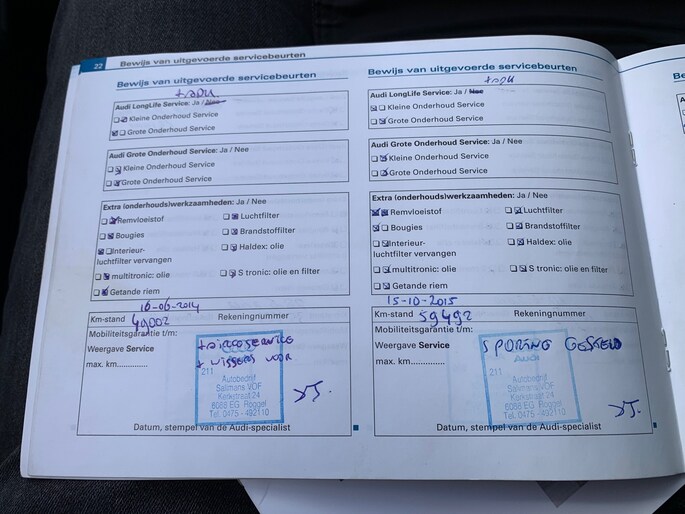 22 Bewijs van uitgevoerde servicebeurten
Bewijs van uitgevoerde servicebeurten
Audi LongLife Service: Ja / Nee
Kleine Onderhoud Service
Grote Onderhoud Service
Audi Grote Onderhoud Service: Ja / Nee
Kleine Onderhoud Service
Grote Onderhoud Service
Extra (onderhouds)werkzaamheden: Ja / Nee
Remvloeistof Luchtfilter
Bougies Brandstoffilter
Interieur- Haldex: olie
luchtfilter vervangen
multitronic: olie S tronic: olie en filter
Getande riem
16-06-2014
Km-stand 49002 Rekeningnummer
Mobiliteitsgarantie t/m:
Weergave Service
max. km.............
+ AIRCO SERVICE
+ WISSERS VOOR
211
Autobedrijf
Sallmans VOF
Kerkstraat 24
6088 EG Roggel
Tel. 0475 - 492110
Datum, stempel van de Audi-specialist
Bewijs van uitgevoerde servicebeurten
Audi LongLife Service: Ja / Nee
Kleine Onderhoud Service
Grote Onderhoud Service
Audi Grote Onderhoud Service: Ja / Nee
Kleine Onderhoud Service
Grote Onderhoud Service
Extra (onderhouds)werkzaamheden: Ja / Nee
Remvloeistof Luchtfilter
Bougies Brandstoffilter
Interieur- Haldex: olie
luchtfilter vervangen
multitronic: olie S tronic: olie en filter
Getande riem
15-10-2015
Km-stand 59492 Rekeningnummer
Mobiliteitsgarantie t/m:
Weergave Service
max. km.............
SPORING GESTELD
Audi
211
Autobedrijf
Sallmans VOF
Kerkstraat 24
6088 EG Roggel
Tel. 0475 - 492110
Datum, stempel van de Audi-specialist